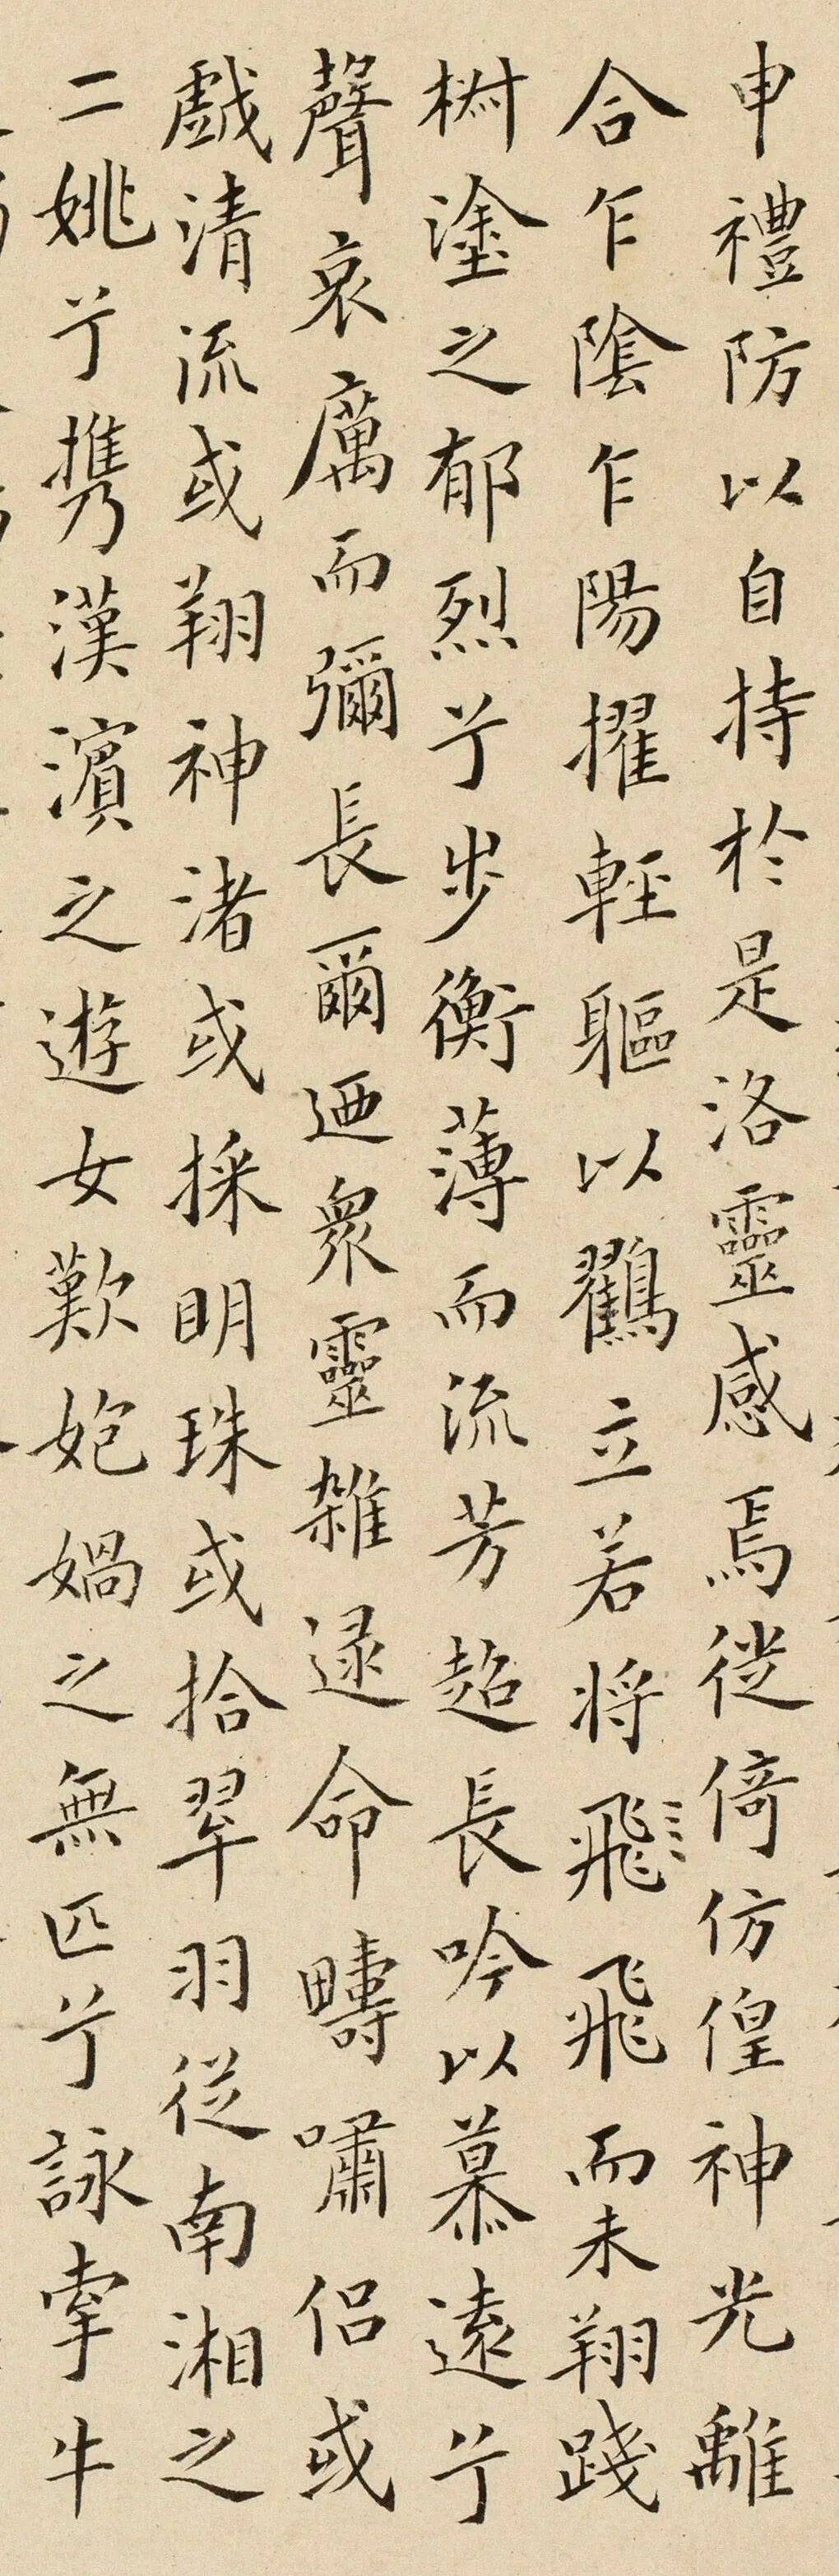 申禮防以自持於是洛靈感焉徙倚仿偟神光離
合乍陰乍陽擢輕軀以鸐立若将飛飛而未翔踐
椒塗之郁烈兮步衡薄而流芳超長吟以慕遠兮
聲哀厲而彌長爾迺衆靈雜逯命疇嘯侶或
戲清流或翔神渚或採明珠或拾翠羽從南湘之
二姚兮携漢濱之遊女歎㚿媧之無匹兮詠牽牛